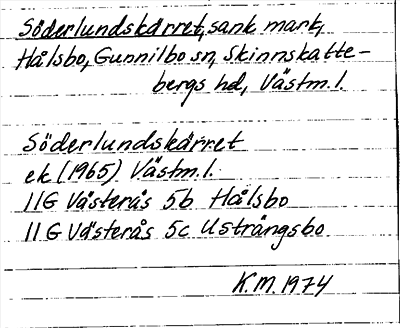 Söderlundskärret, sank mark,
Hålsbo, Gunnilbo sn, Skinnskatte-
bergs hd, Västm.l.
Söderlundskärret
ek (1965) Västm.l.
11G Västerås 5b Hålsbo
11G Västerås 5c Usträngsbo
K.M. 1974